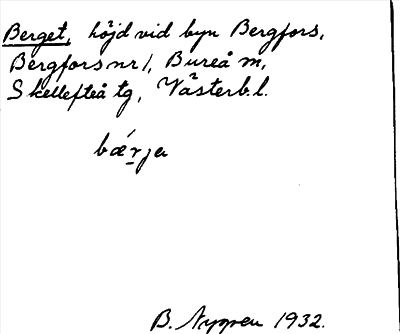 Berget, höjd vid byn Bergfors,
Bergfors nr 1, Bureå m,
Skellefteå tg, Västerb. l.
bǽrja
B. Nygren 1932.